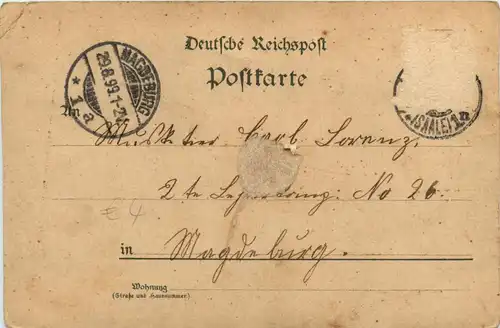 Deutsche Reichspost
Postkarte
MAGDEBURG
29.8.99.1-2
* 1 a
(SAALE) 1 n
An
Musketier Carl Lorenz,
2te No 26.
in Magdeburg.
Wohnung
(Straße und Hausnummer)
€ 4